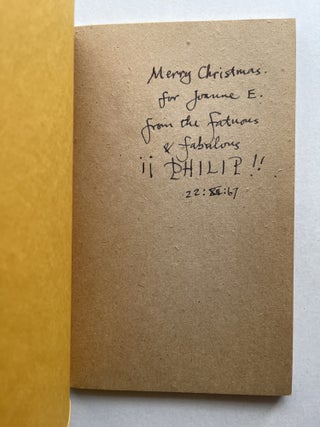 Merry Christmas.
for Joanne E.
from the fatuous
& fabulous
¡¡ PHILIP !!
22:XII:67